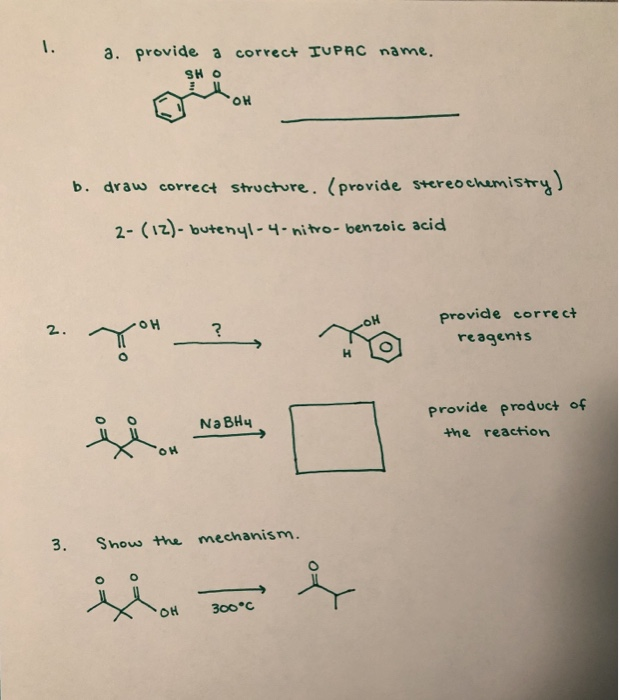 1. a. provide a correct IUPAC name.
SH O
OH
b. draw correct structure. (provide stereochemistry)
2-(1Z)-butenyl-4-nitro-benzoic acid
2. OH ? OH provide correct
reagents
O H
O O NaBH4 provide product of
the reaction
OH
3. Show the mechanism.
O O O
OH 300°C